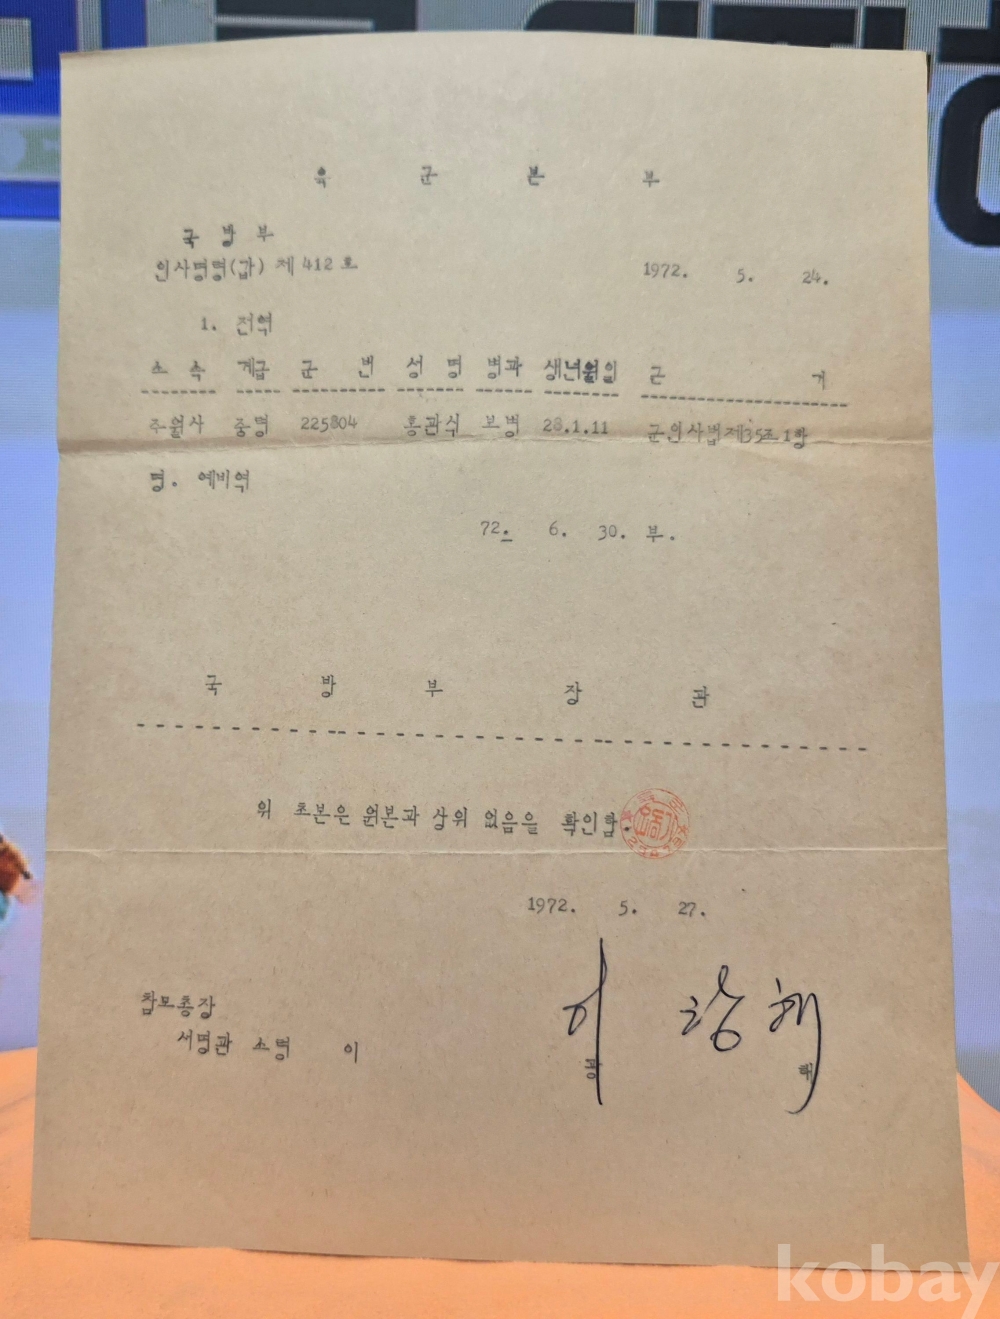 육 군 본 부
국 방 부
인사명령(갑) 제 412 호
1972. 5. 24.
1. 전역
소 속 계급 군 번 성 명 병과 생년월일 근 거
주월사 중령 225804 홍관식 보병 28.1.11 군인사법제35조1항
명. 예비역
72. 6. 30. 부.
국 방 부 장 관
위 초본은 원본과 상위 없음을 확인함.
1972. 5. 27.
참모총장
서명관 소령 이
kobay